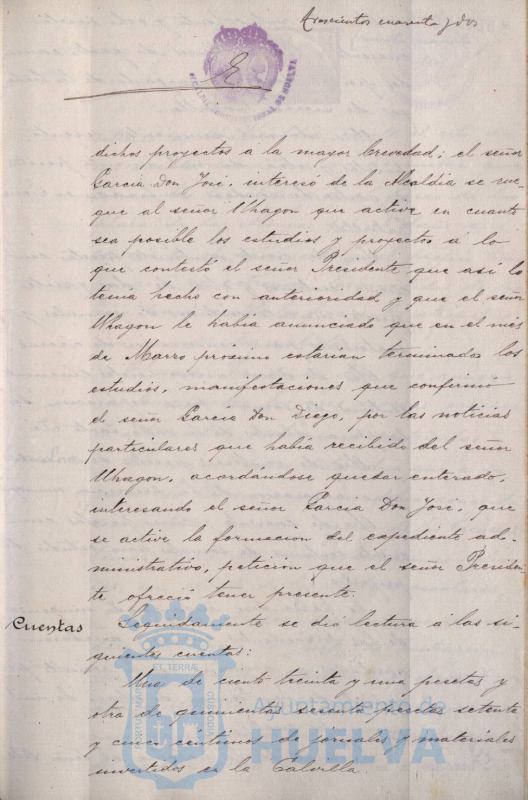 trescientos cuarenta y dos
dichos proyectos a la mayor brevedad; el señor
Garcia Don José, interesó de la Alcaldia se rue-
gue al señor Uhagon que active en cuanto
sea posible los estudios y proyectos á lo
que contestó el señor Presidente que así lo
tenia hecho con anterioridad y que el señor
Uhagon le habia anunciado que en el mes
de Marzo próximo estarian terminados los
estudios, manifestaciones que confirmó
el señor Garcia Don Diego, por las noticias
particulares que habia recibido del señor
Uhagon, acordándose quedar enterado,
interesando el señor Garcia Don José, que
se active la formacion del expediente ad-
ministrativo, peticion que el señor Presiden-
te ofreció tener presente.
Cuentas
Seguidamente se dió lectura á las si-
guientes cuentas:
Una de ciento treinta y una pesetas y
otra de quinientas sesenta pesetas setenta
y cinco céntimos de jornales y materiales
invertidos en la
Ayuntamiento de
HUELVA